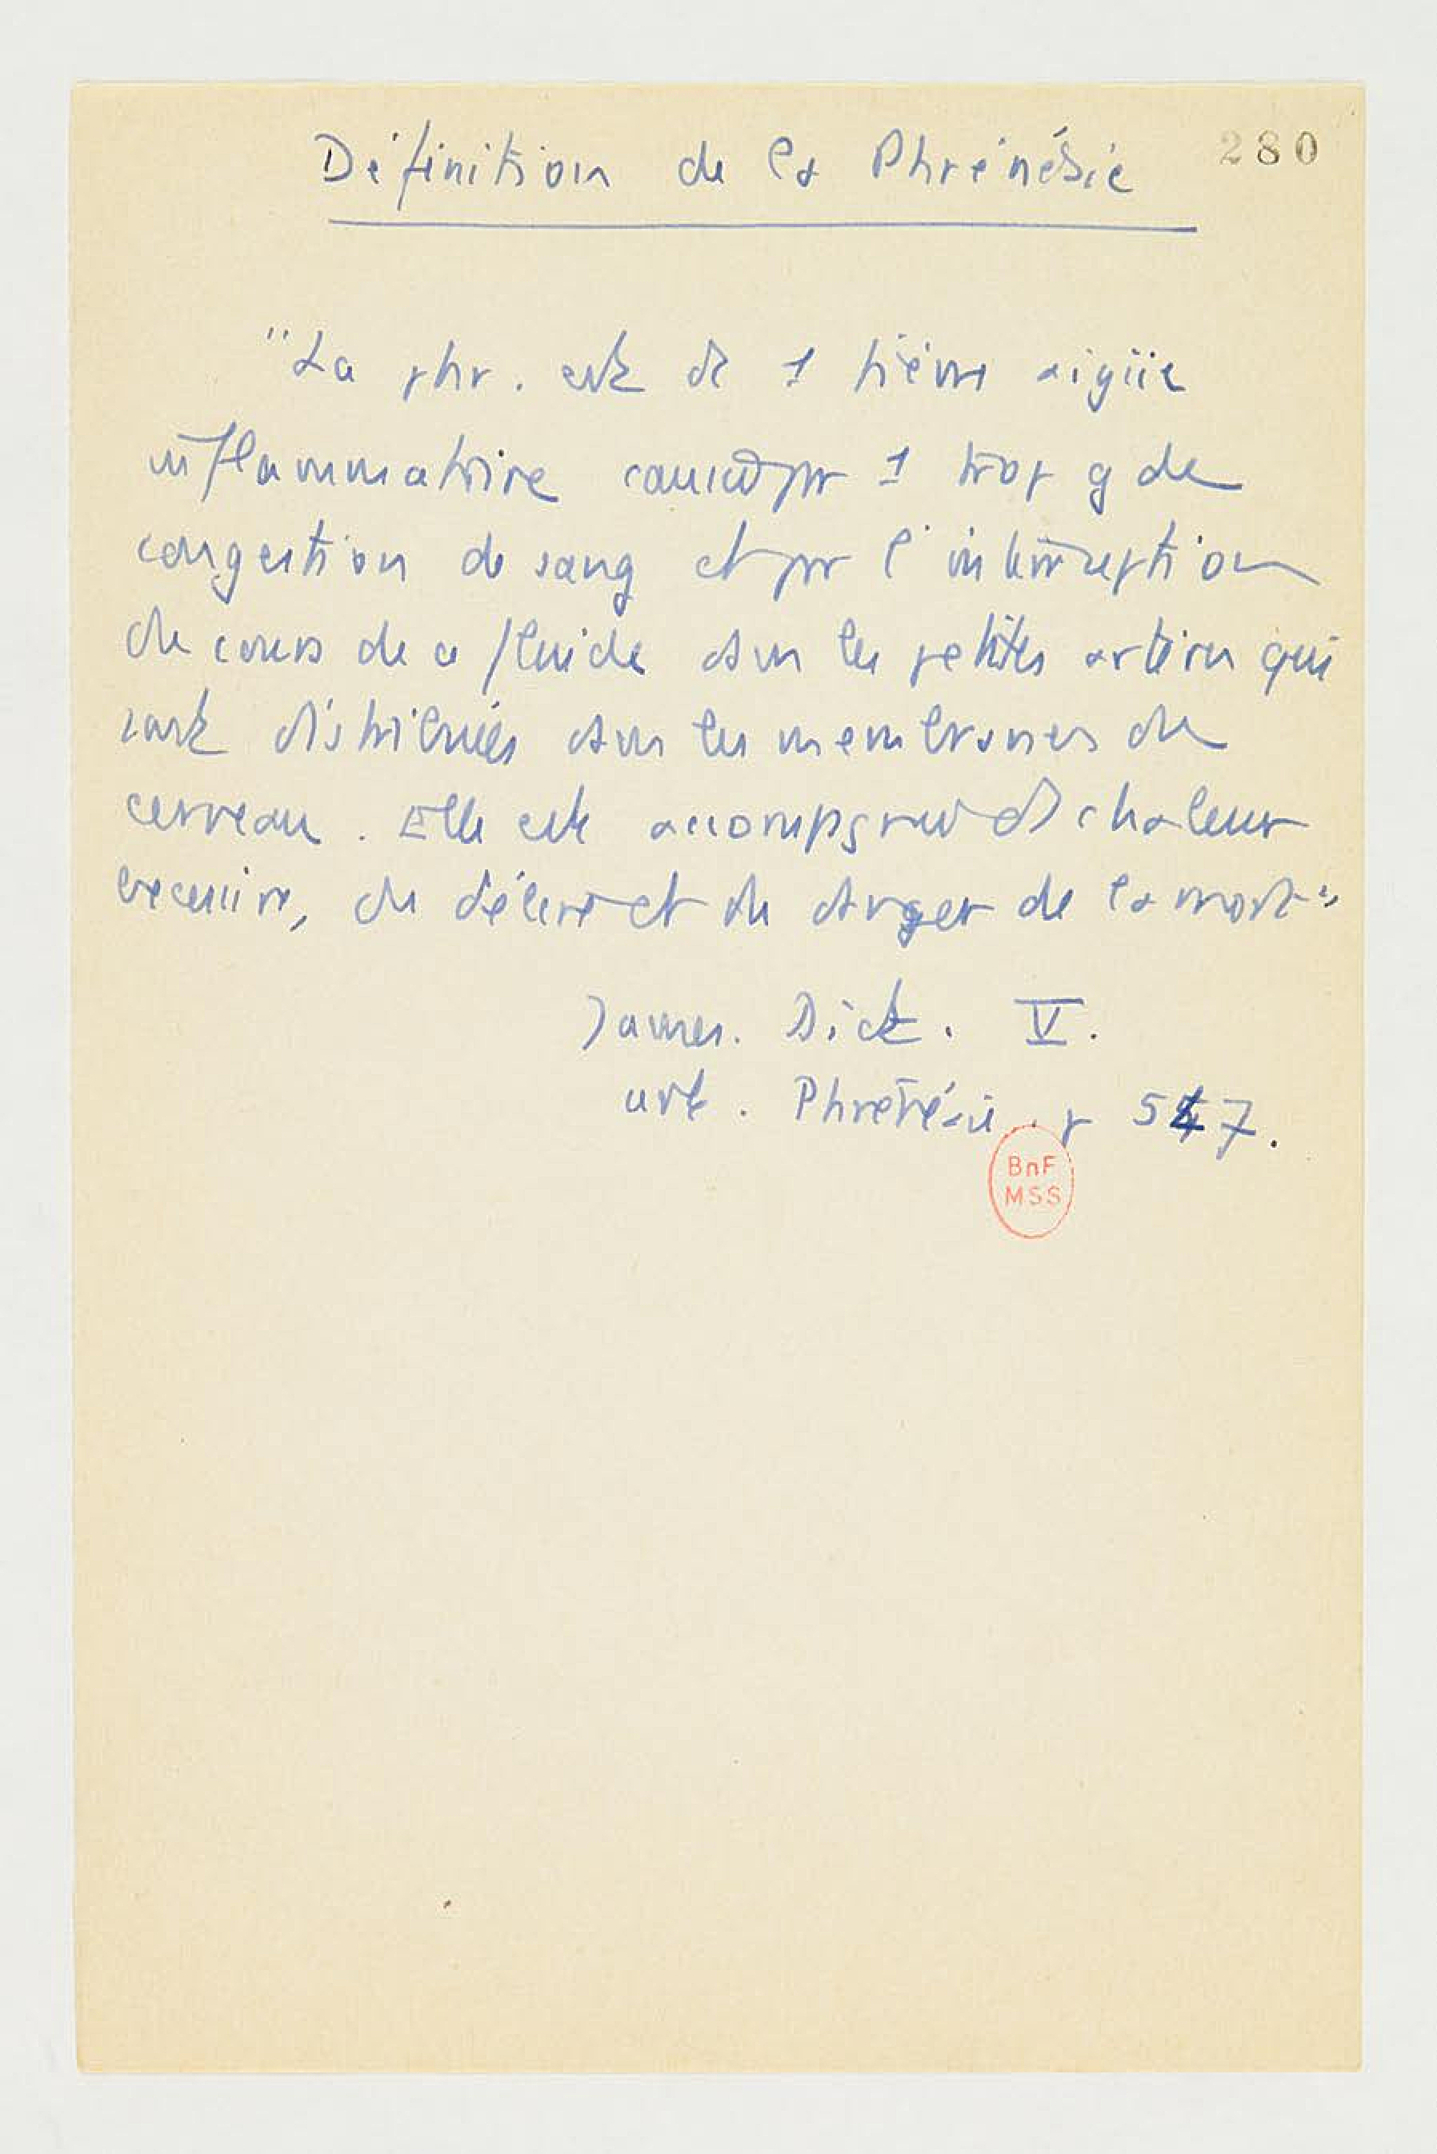 Définition de la Phrénésie 280
"La phr. est 1 fièvre aigüe
inflammatoire causée par 1 trop gde
congestion de sang et par l'interruption
du cours de ce fluide dans les petites artères qui
sont distribuées dans les membranes du
cerveau. Elle est accompagnée de chaleur
excessive, du délire et du danger de la mort"
James. Dict. V.
art. Phrénésie. p 547.
BnF
MSS